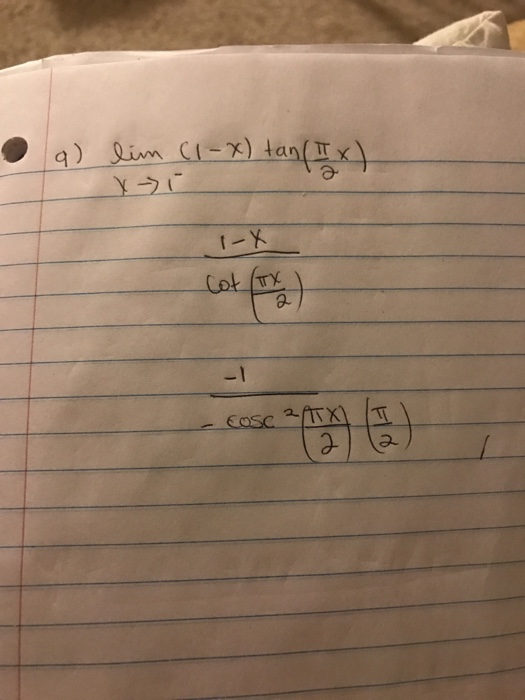 9) lim (1-x) tan(π/2 x)
x→1⁻
1-x
cot (πx/2)
-1
- cosc² (πx/2) (π/2)